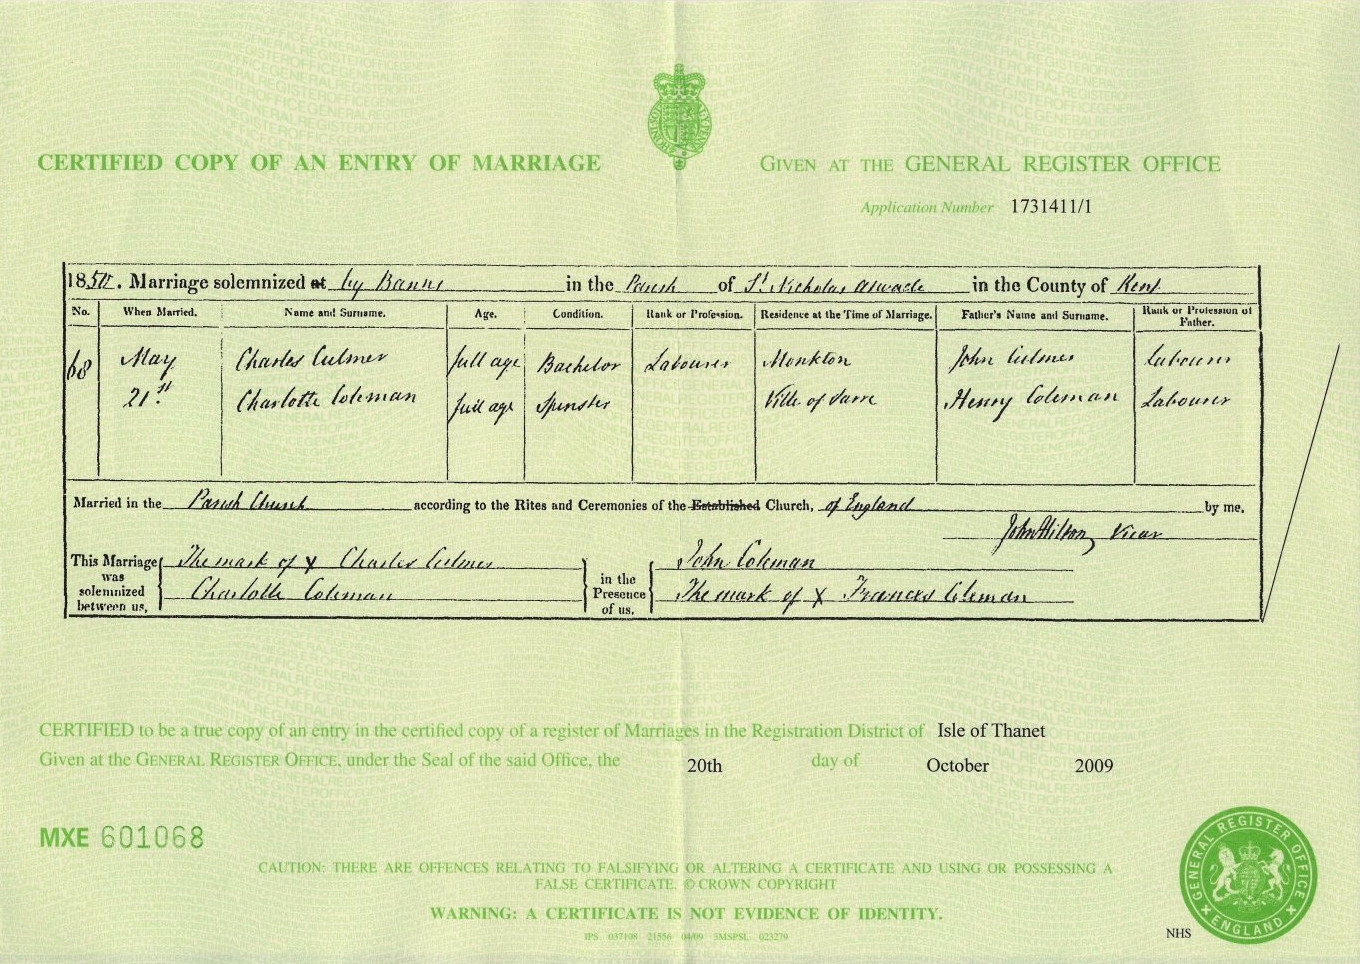 CERTIFIED COPY OF AN ENTRY OF MARRIAGE
GIVEN AT THE GENERAL REGISTER OFFICE
Application Number 1731411/1
Marriage solemnized at by Banns in the Parish of St Nicholas at Wade in the County of Kent
No. When Married. Name and Surname. Age. Condition. Rank or Profession. Residence at the Time of Marriage. Father's Name and Surname. Rank or Profession of Father.
68 May Charles Culmer full age Bachelor Labourer Monkton John Culmer Labourer
21st Charlotte Coleman full age Spinster Ville of Sarre Henry Coleman Labourer
Married in the Parish Church according to the Rites and Ceremonies of the Established Church, of England by me,
John Hilton, Vicar
This Marriage was solemnized between us, The mark of X Charles Culmer
Charlotte Coleman
in the Presence of us, John Coleman
The mark of X Frances Coleman
CERTIFIED to be a true copy of an entry in the certified copy of a register of Marriages in the Registration District of Isle of Thanet
Given at the GENERAL REGISTER OFFICE, under the Seal of the said Office, the 20th day of October 2009
MXE 601068
CAUTION: THERE ARE OFFENCES RELATING TO FALSIFYING OR ALTERING A CERTIFICATE AND USING OR POSSESSING A
FALSE CERTIFICATE. © CROWN COPYRIGHT
WARNING: A CERTIFICATE IS NOT EVIDENCE OF IDENTITY.
GENERAL REGISTER OFFICE
ENGLAND
NHS